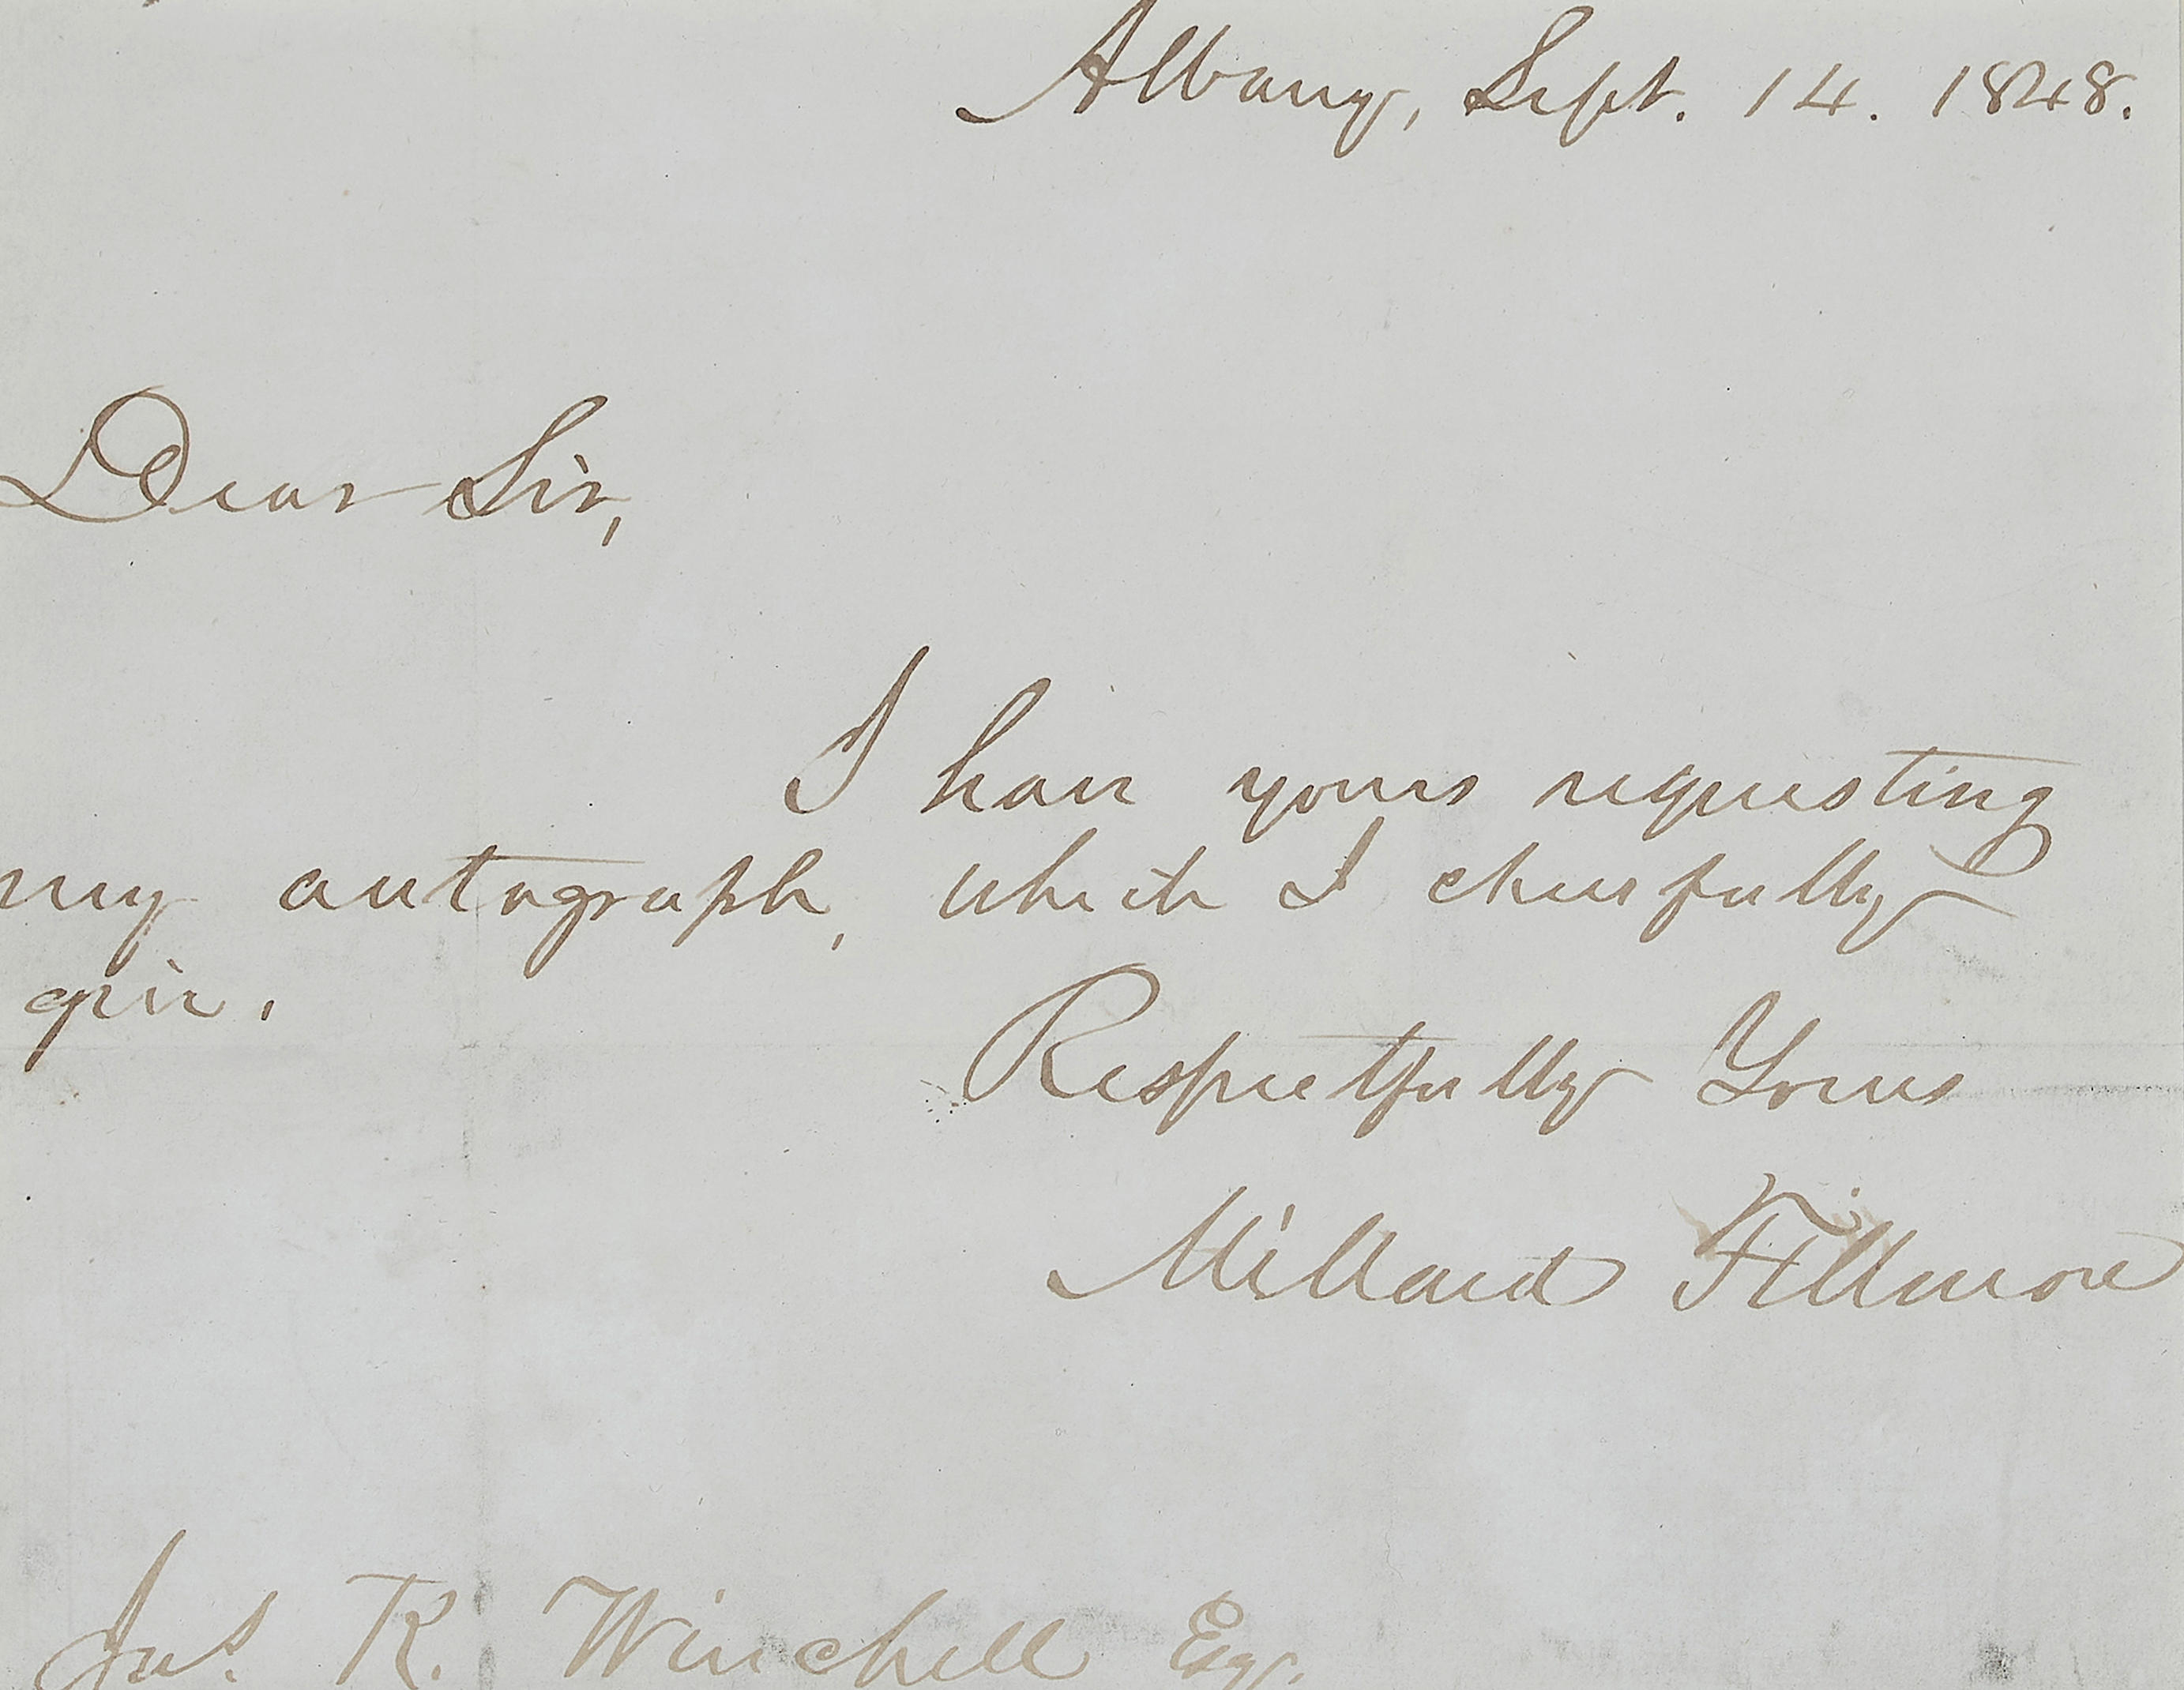 Albany, Sept. 14. 1848.
Dear Sir,
I have yours requesting
my autograph, which I cheerfully
give.
Respectfully Yours
Millard Fillmore
Jas. R. Winchell Esqr.